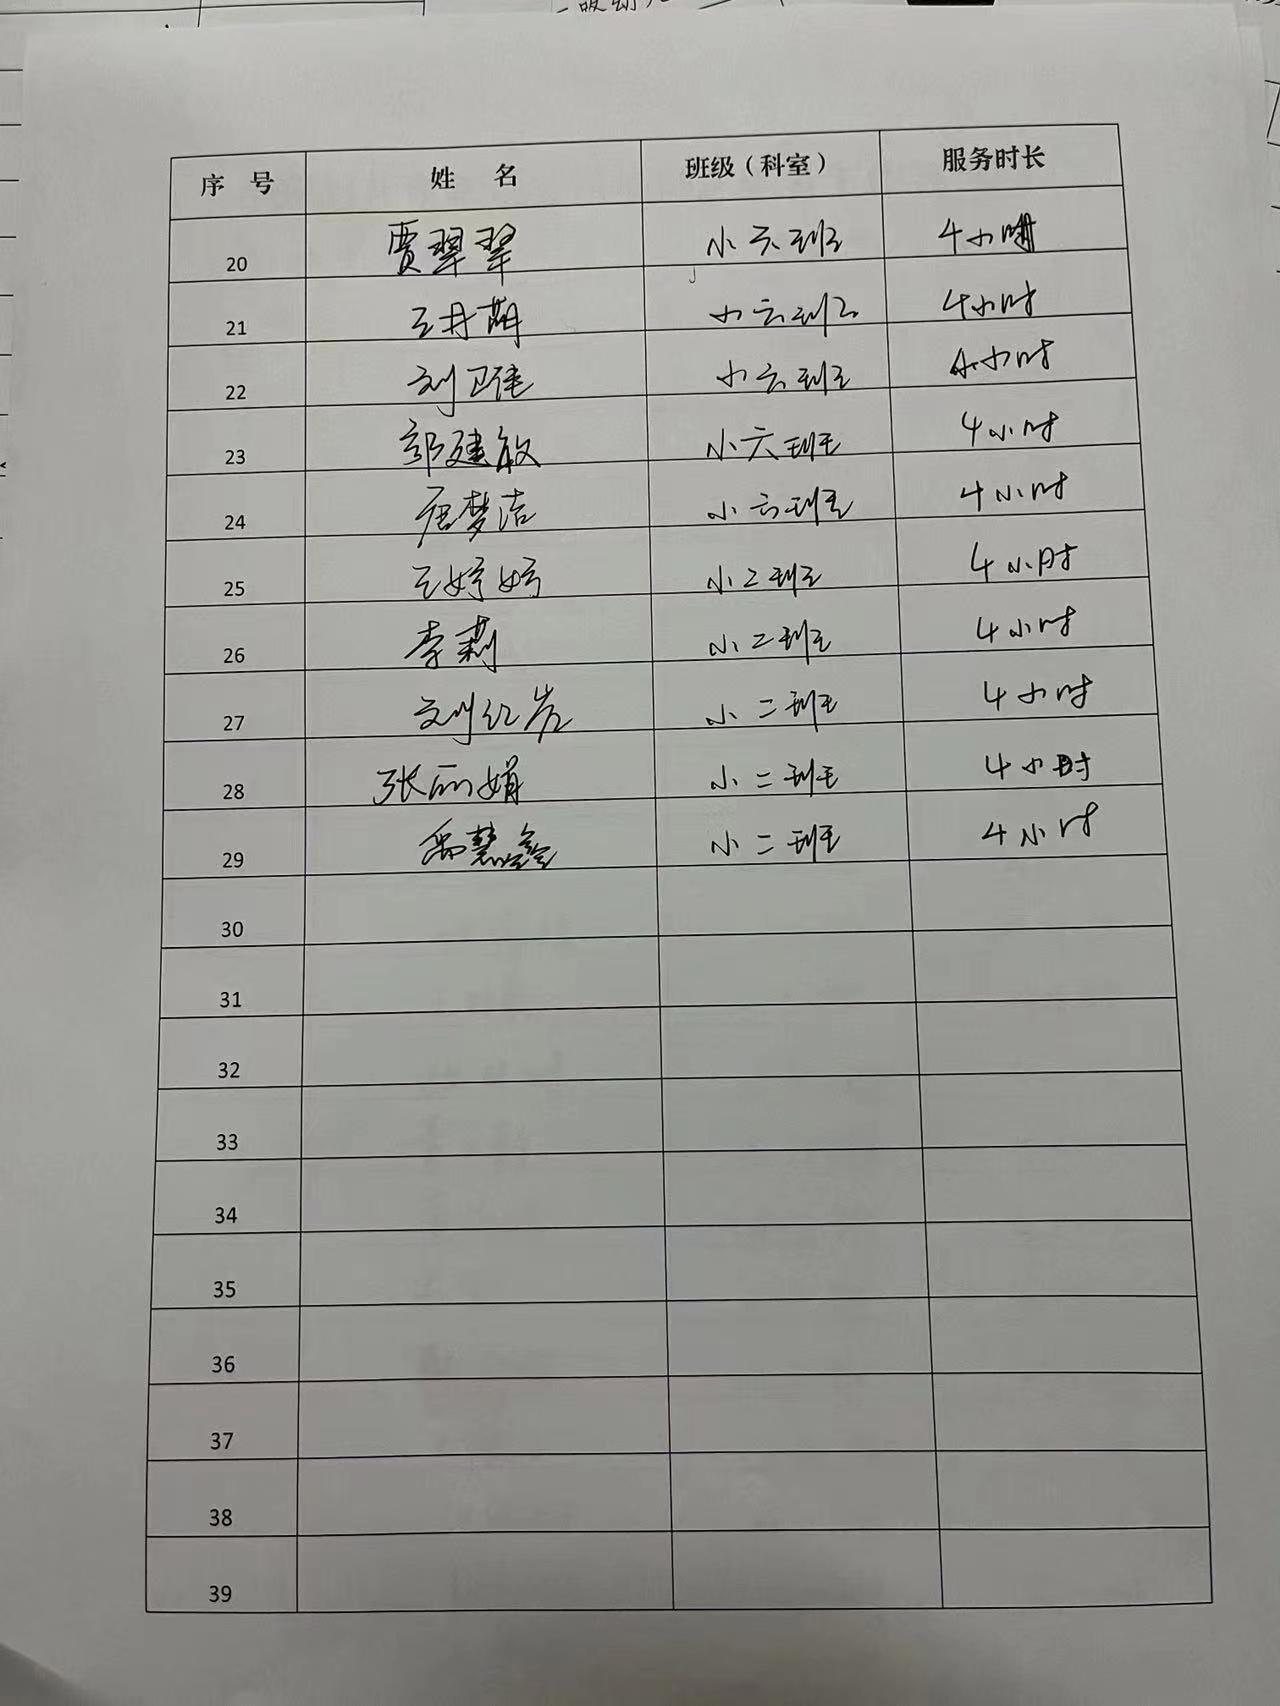 序 号 姓 名 班级（科室） 服务时长
20 贾翠翠 小六班 4小时
21 王丹萌 小六班 4小时
22 刘卫佳 小六班 4小时
23 郭建敏 小六班 4小时
24 唐梦洁 小六班 4小时
25 王婷婷 小二班 4小时
26 李莉 小二班 4小时
27 刘红岩 小二班 4小时
28 张丽娟 小二班 4小时
29 禹慧鑫 小二班 4小时
30
31
32
33
34
35
36
37
38
39